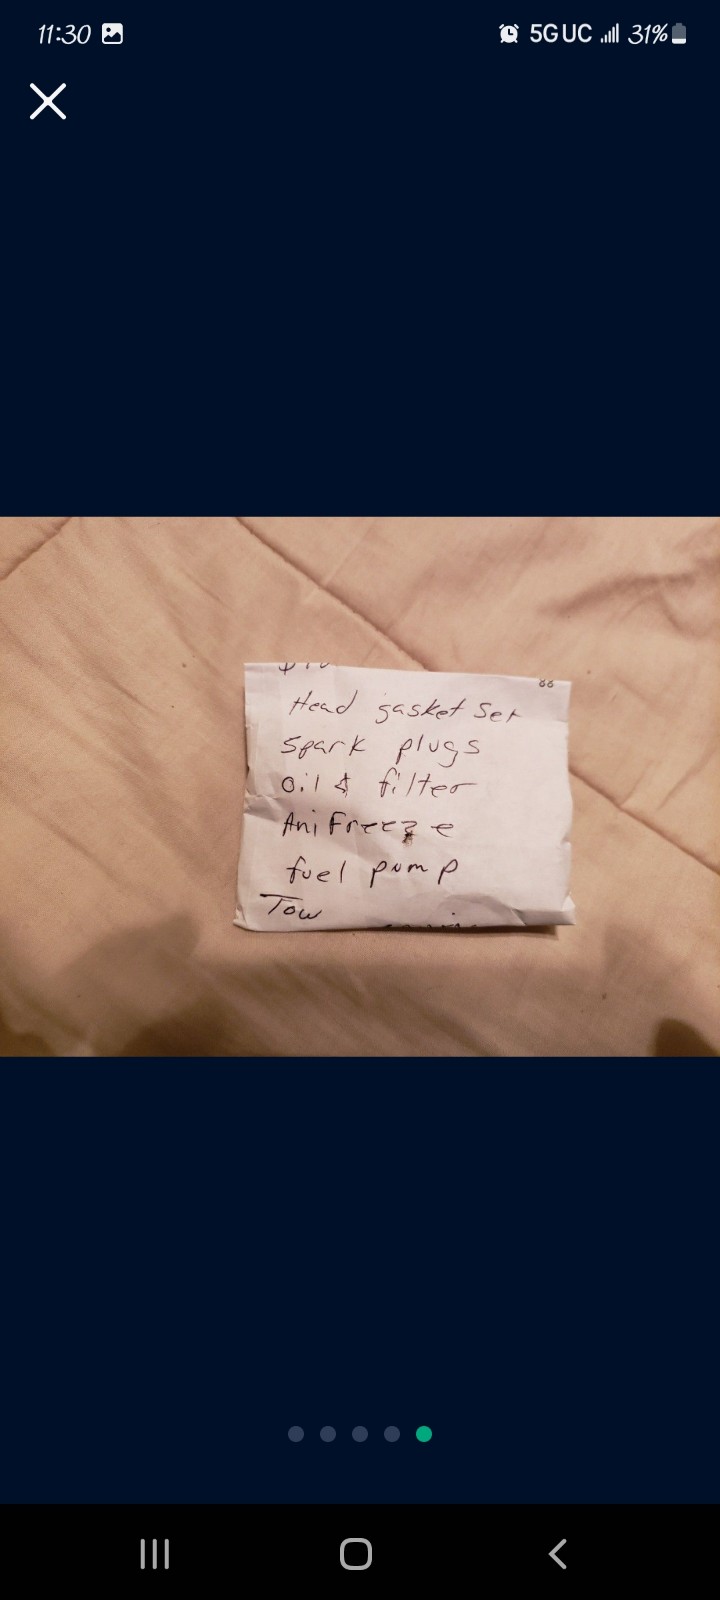 11:30 5G UC 31%
Head gasket Set
Spark plugs
Oil & filter
Ani Freeze
fuel pump
Tow